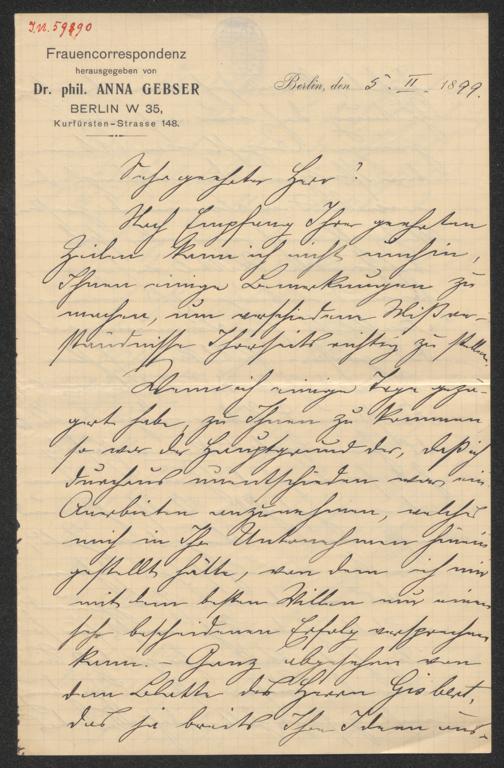 J.N. 59890
Frauencorrespondenz
herausgegeben von
Dr. phil. ANNA GEBSER
BERLIN W 35,
Kurfürsten-Strasse 148.
Berlin, den 5. II. 1899.
Sehr geehrter Herr!
Nach Empfang Ihrer geehrten
Zeilen kann ich nicht umhin,
Ihnen einige Bemerkungen zu
machen, um verschiedene Mißver-
ständnisse Ihrerseits richtig zu stellen.
Wenn ich einige Tage gezö-
gert habe, zu Ihnen zu kommen
so war der Hauptgrund der, daß ich
durchaus unentschieden war, ein
Anerbieten anzunehmen, welches
mich in Ihr Unternehmen hinein
gestellt hätte, von dem ich mir
mit dem besten Willen nur einen
sehr bescheidenen Erfolg versprechen
kann. – Ganz abgesehen von
dem Blatte des Herrn Gisbert,
das ja bereits Ihre Ideen aus-